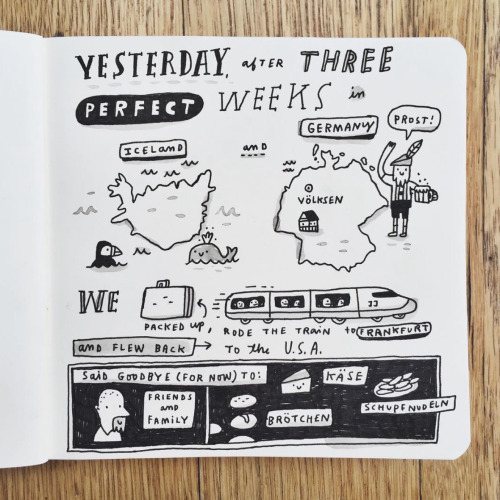 YESTERDAY, after THREE
PERFECT WEEKS in
ICELAND and GERMANY
PROST!
VÖLKSEN
WE PACKED UP, RODE THE TRAIN to FRANKFURT
JJ
AND FLEW BACK → TO the U.S.A.
SAID GOODBYE (FOR NOW) TO:
FRIENDS
and
FAMILY
KÄSE
BRÖTCHEN
SCHUPFNUDELN